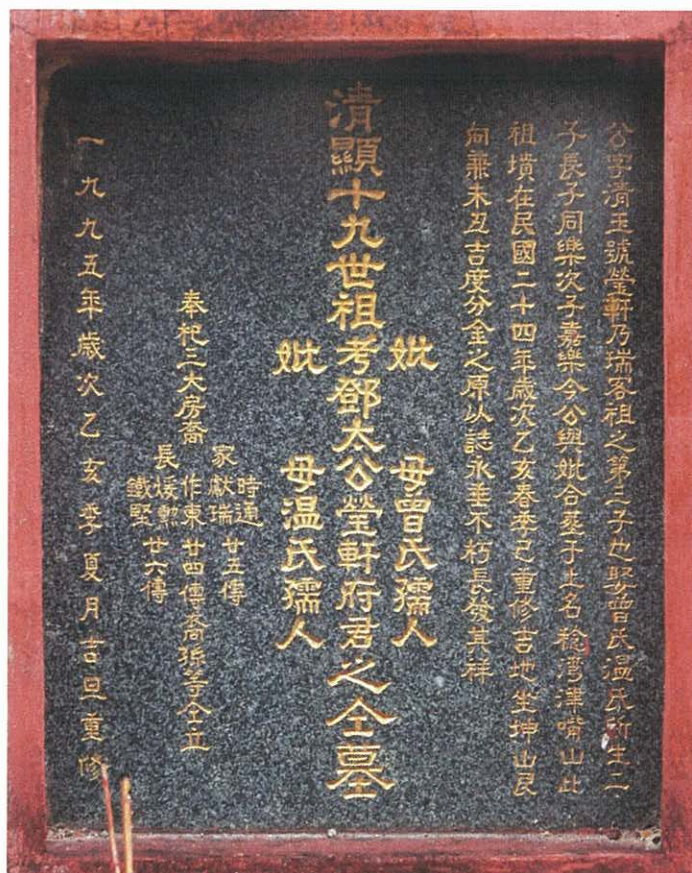 公字清玉號瑩軒乃瑞客祖之第二子也娶曾氏溫氏所生二
子長子同樂次子嘉樂今公與妣合葬于土名稔灣津嘴山此
祖墳在民國二十四年歲次乙亥春季已重修吉地坐坤山艮
向兼未丑吉度分金之原以誌永垂不朽長發其祥
妣 母曾氏孺人
清顯十九世祖考鄧太公瑩軒府君之仝墓
妣 母温氏孺人
時通
家獻瑞 廿五傳
奉祀二大房裔 作東 廿四傳裔孫等仝立
民煖勲
鐵堅 廿六傳
一九九五年歲次乙亥季夏月吉旦重修